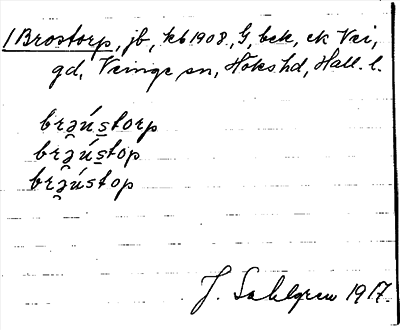 /Brostorp, jb, kb 1908, G, bek, ek Vei,
gd, Veinge sn, Höks hd, Hall. l.
brə̯ústorp
brə̯ústop
brə̯ústop
J. Sahlgren 1917.